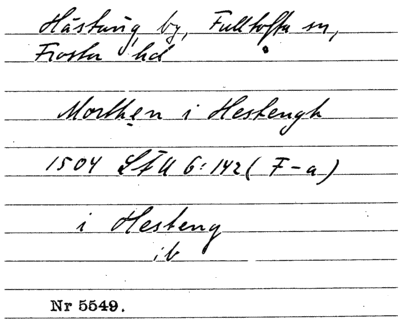 Hästäng by, Fulltofta sn,
Frosta hd
Morthen i Hestengh
1504 LÅU 6:142 (F-a)
i Hesteng
ib
Nr 5549.